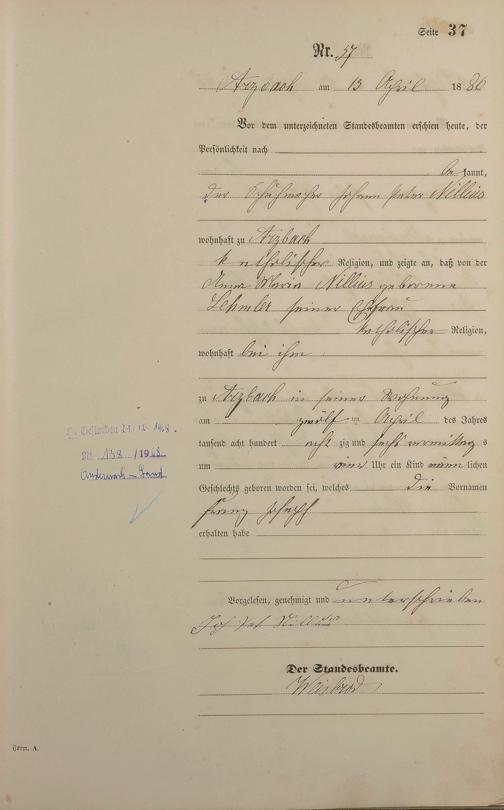 Seite 37
Nr. 37
Arzbach am 13 April 1886
Vor dem unterzeichneten Standesbeamten erschien heute, der
Persönlichkeit nach
be kannt,
der Schuhmacher Johann Peter Nillius
wohnhaft zu Arzbach
katholischer Religion, und zeigte an, daß von der
Anna Maria Nillius geborene
Lehmler seiner Ehefrau
katholischer Religion,
wohnhaft bei ihm
zu Arzbach in seiner Wohnung
am zwölf ten April des Jahres
tausend acht hundert acht zig und sechs vormittag s
um Uhr ein Kind männ lichen
Geschlechts geboren worden sei, welches die Vornamen
Franz Joseph
erhalten habe
Vorgelesen, genehmigt und unterschrieben
Joh Pet Nillius
Der Standesbeamte.
Weisbrod
Form. A.
Gestorben 21.12.1968.
Nr. 138 /1968
Andernach-Land